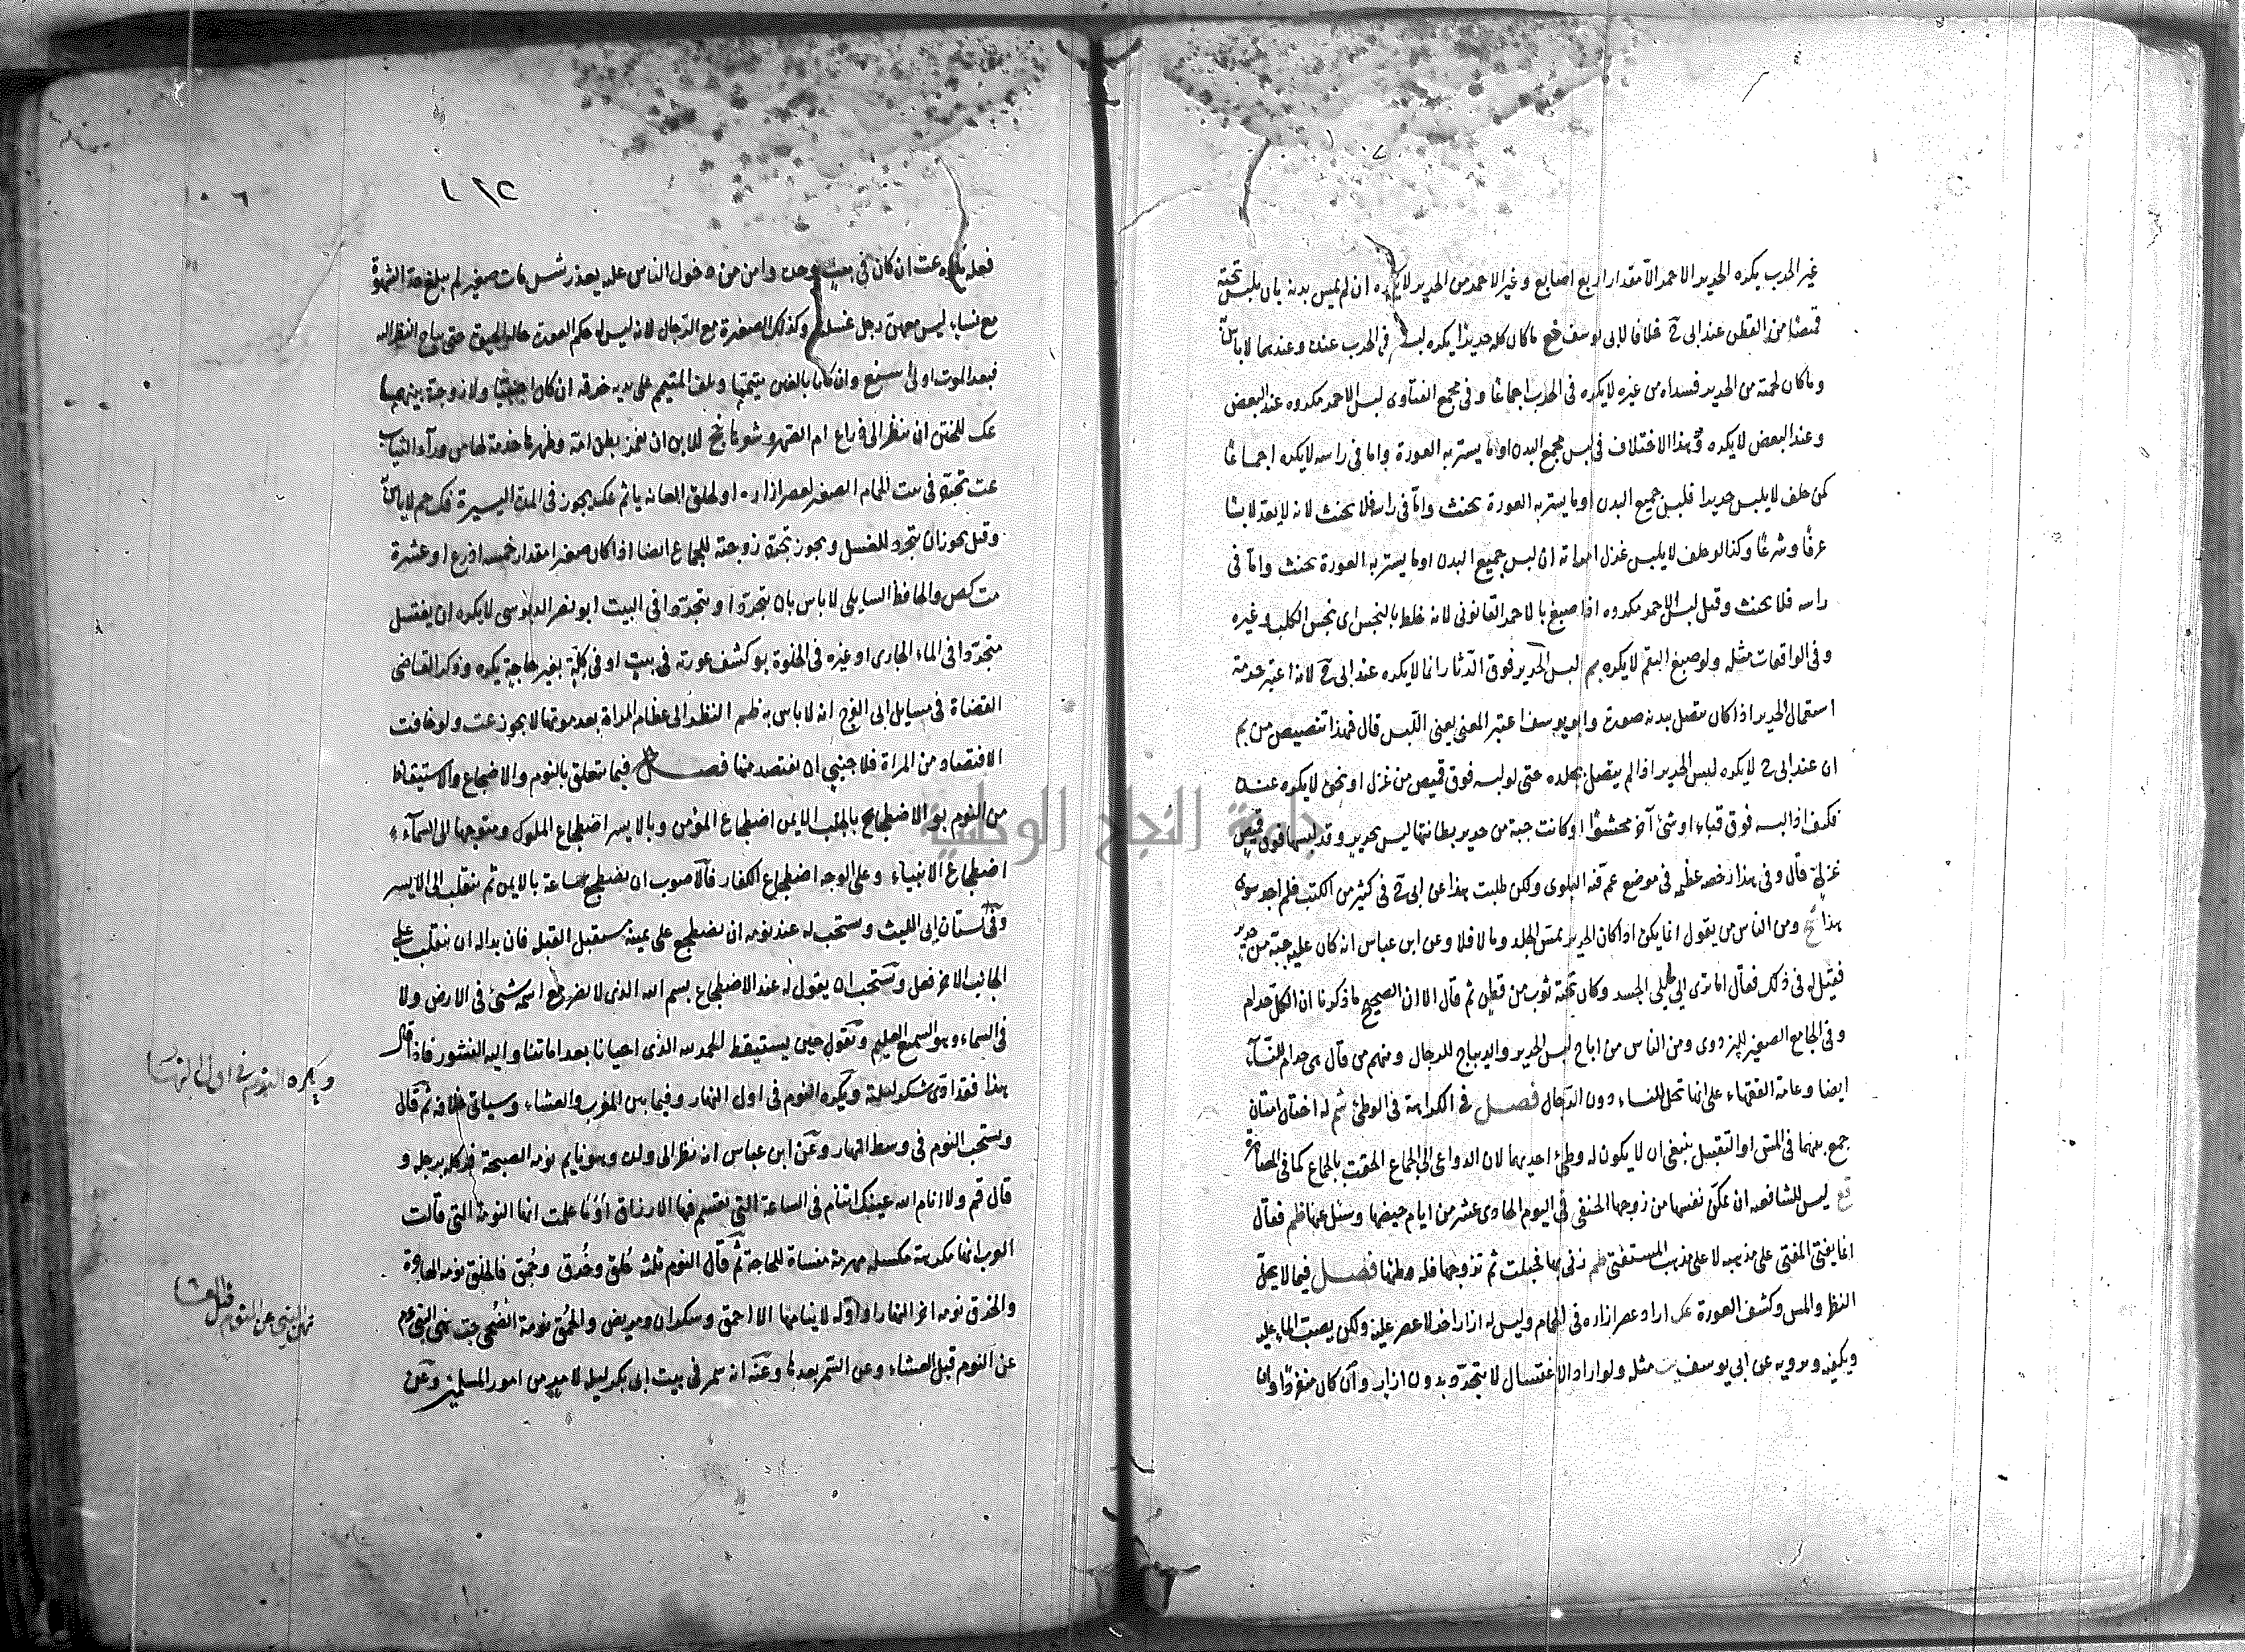 غير الحرب يكره الحرير الاحمر الا مقدار اربع اصابع وغير الاحمر من الحرير لا يكره ان لم يمس بدنه بان يلبس تحته
قميصا من القطن عند ابى ح خلافا لابى يوسف ما كان كله حديرا يكره لبسه فى الحرب عنده وعندهما لا باس
وما كان لحمته من الحرير فسداه من غيره لا يكره فى الحرب اجماعا وفى مجمع الفتاوى لبس الاحمر مكروه عند البعض
وعند البعض لا يكره وهذا الاختلاف فى لبس مجمع البدن او ما يستر به العورة واما فى راسه لا يكره اجماعا
كمن حلف لا يلبس حريرا فلبس جميع البدن او ما يستر به العورة يحنث واما فى راسه فلا يحنث لانه لا يعد لابسا
عرفا وشرعا وكذا لو حلف لا يلبس غزل امراته ان لبس جميع البدن او ما يستر به العورة يحنث واما فى
راسه فلا يحنث وقيل لبس الاحمر مكروه اذا صبغ بالاحمر القانونى لانه خلط بالنجس اى نجس الكلب وغيره
وفى الواقعات مثله ولو صبغ البقم لا يكره بم لبس الحرير فوق الدثار انما لا يكره عند ابى ح لانه اعتبر حرمة
استعمال الحرير اذا كان متصل ببدنه صورة وابو يوسف اعتبر المعنى يعنى اللبس قال فهذا تنصيص من بم
ان عند ابى ح لا يكره لبس الحرير اذا لم يتصل بجلده حتى لو لبسه فوق قميص من غزل او نحوه لا يكره عنده
فكيف اذا لبسه فوق قباء او شئ آخر محشوا او كانت جبة من حرير بطانتها ليس بحرير وقد لبسها فوق قميص
غزلى قال وفى هذا رخصه عظيمه فى موضع عم فيه البلوى ولكن طلبت هذا عن ابى ح فى كثير من الكتب فلم اجد سوى
هذا ومن الناس من يقول انما يكره اذا كان الحرير يمس الجلد وما لا فلا وعن ابن عباس انه كان عليه جبة من حرير
فقيل له فى ذلك فقال اما ترى الى ما يلى الجسد وكان تحته ثوب من قطن ثم قال الا ان الصحيح ما ذكرنا ان الكل حرام
وفى الجامع الصغير للبزدوى ومن الناس من اباح لبس الحرير والديباج للرجال ومنهم من قال هى حرام للنساء
ايضا وعامة الفقهاء على انها تحل للنساء دون الرجال فصـــل فى الكراهة فى الوطئ شم له اختان امتان
جمع بينهما فى المس او التقبيل ينبغى ان لا يكون له وطئ احديهما لان الدواعى الى الجماع الحقت بالجماع كما فى المصاهرة
قع ليس للشافعيه ان تمكن نفسها من زوجها الحنفى فى اليوم الحادى عشر من ايام حيضها وسئل عنها ظم فقال
انما يفتى المفتى على مذهبه لا على مذهب المستفتى ظم زنى بها فحبلت ثم تزوجها فله وطئها فصـــل فيما لا يحل
النظر والمس وكشف العورة عك اراد عصر ازاره فى الحمام وليس له ازار اخر لا عصر عليه ولكن يصب الماء عليه
ويكفيه ويرويه عن ابى يوسف مثله ولو اراد الاغتسال لا يتجرد بدون ازار وان كان منفردا وان
١٠٦
فعله عت ان كان فى بيت وحده وامن من دخول الناس عليه يعذر شس مات صغير لم يبلغ حد الشهوة
مع نساء ليس معهن رجل غسلنه وكذلك الصغيرة مع الرجال لانه ليس له حكم العورة حالة الحيوة حتى يباح النظر اليه
فبعد الموت اولى وان كانا بالغين يتيمها ويلف المتيمم على يديه خرقه ان كان اجنبيا ولا زوجة بينهما
عك للختن ان ينظر الى ذراع ام الصهر وشعرها نج للابن ان يغمز بطن امه وظهرها خدمة لها من وراء الثياب
عت تجرد فى بيت الحمام الصغير لعصر ازاره او لحلق العانه ياثم عك يجوز فى المدة اليسيرة فك حم لا باس
وقيل يجوز ان يتجرد للغسل ويجوز تجرد زوجته للجماع ايضا اذا كان صغيرا مقدار خمسه اذرع او عشرة
مت كص والحافظ السايلى لا باس بان يتجردا او يتجردا فى البيت ابو نصر الدبوسى لا يكره ان يغتسل
متجردا فى الماء الجارى او غيره فى الخلوة بو كشف عورته فى بيت او فى كلة بغير حاجة يكره وذكر القاضى
القضاة فى مسايل ابى الفرج انه لا باس به ظم النظر الى عظام المراة بعد موتها لا يجوز عت ولو خافت
الافتصاد من المراة فلاجنبى ان يفتصد منها فصـــل فيما يتعلق بالنوم والاضجاع والاستيقاظ
من النوم بو الاضطجاع بالجنب الايمن اضطجاع المؤمن وبالايسر اضطجاع الملوك ومتوجها الى السمآء
اضطجاع الانبياء وعلى الوجه اضطجاع الكفار فالاصوب ان يضطجع ساعة بالايمن ثم ينقلب الى الايسر
وفى بستان ابى الليث ويستحب له عند نومه ان يضطجع على يمينه مستقبل القبله فان بدا له ان ينقلب على
الجانب الاخر فعل ويستحب ان يقول له عند الاضطجاع بسم الله الذى لا يضر مع اسمه شئ فى الارض ولا
فى السماء وهو السميع العليم ويقول حين يستيقظ الحمد لله الذى احيانا بعد اماتنا واليه النشور فاذا قال
هذا فقد ادى شكر ليلته ويكره النوم فى اول النهار وفيما بين المغرب والعشاء وسياتى خلافه ثم قال
ويستحب النوم فى وسط النهار وعن ابن عباس انه نظر الى ولده وهو نايم نومه الصبحة فركله برجله و
قال قم ولا انام الله عينك اتنام فى الساعة التى يقسم فيها الارزاق او ما علمت انها النومة التى قالت
العرب انها مكربة مكسله مهرمة منساة للحاجة ثم قال النوم ثلثه خلق وخرق وحمق فالخلق نومه الهاجرة
والخرق نومه اخر النهار اوله لا ينامها الا احمق وسكران ومريض والحمق نومة الضحى نهى النبى عم
عن النوم قبل العشاء وعن السمر بعدها وعنه انه سمر فى بيت ابى بكر ليله لامر من امور المسلمين وعن
ويكره النوم فى اول النهار
نهى النبى عن النوم قبل العشا
جامعة النجاح الوطنية